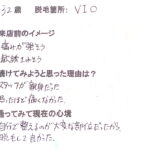 32歳 脱毛箇所: VIO
来店前のイメージ
痛みが強そう
続けてみようと思った理由は?
スタッフが親身だった
思ったほど痛くなかった
通ってみて現在の心境
自分で整えるのが大変な部位だったから、
脱毛して良かった。